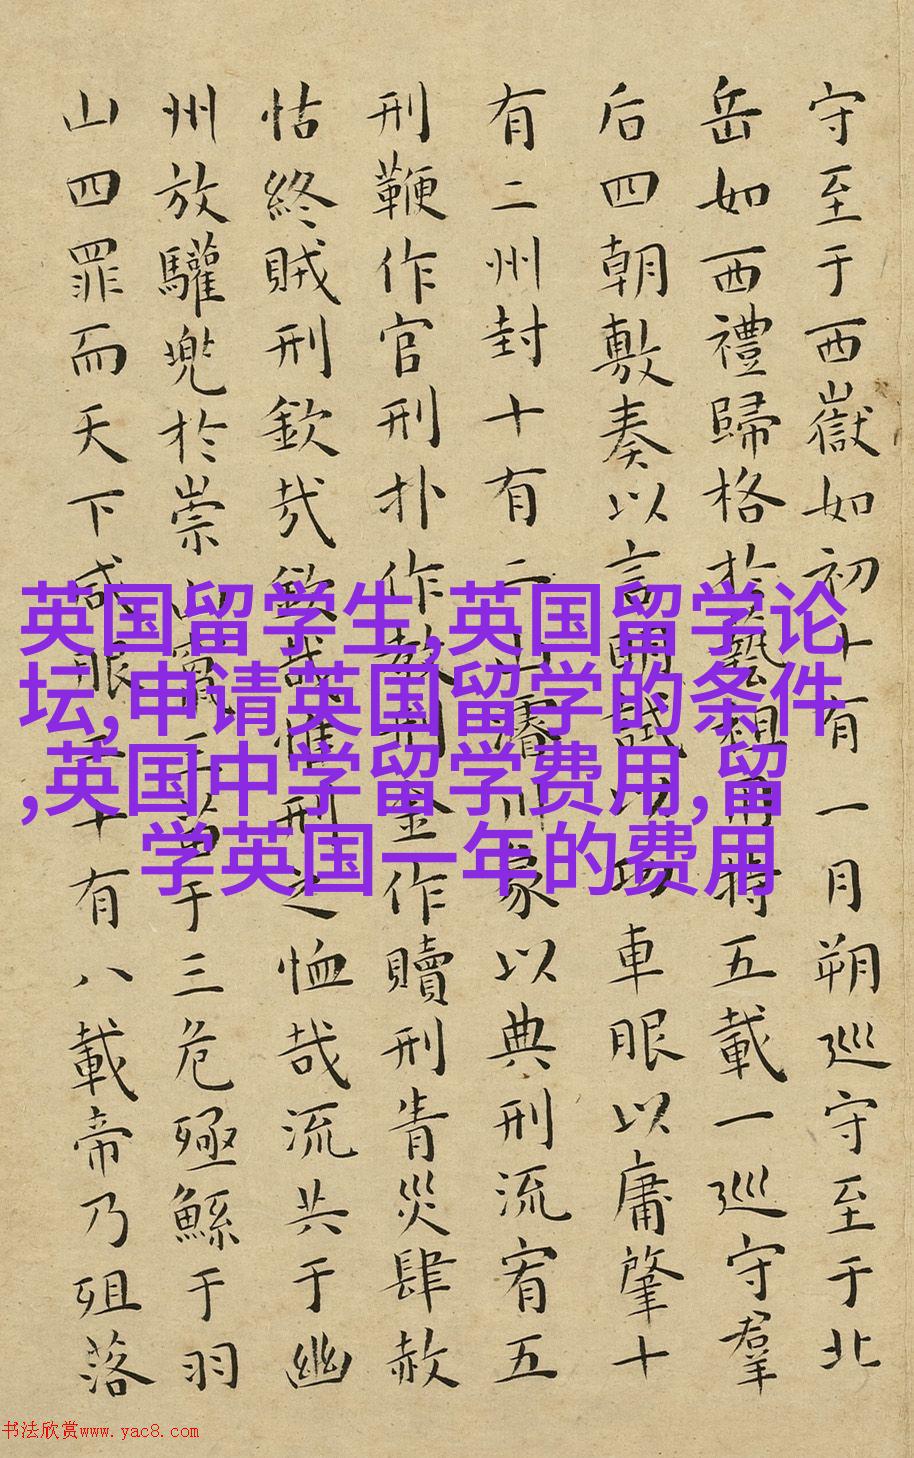 守至于西嶽如初十有一月朔巡守至于北
岳如西禮歸格於藝祖用特五載一巡守羣
后四朝敷奏以言明試以功車服以庸肇十
有二州封十有二山濬川象以典刑流宥五
刑鞭作官刑扑作教刑金作贖刑眚災肆赦
怙終賊刑欽哉欽哉惟刑之恤哉流共于幽
州放驩兜於崇山竄三苗于三危殛鯀于羽
山四罪而天下咸服二十有八載帝乃殂落
英国留学生,英国留学论
坛,申请英国留学的条件
,英国中学留学费用,留
学英国一年的费用
书法欣赏www.yac8.com